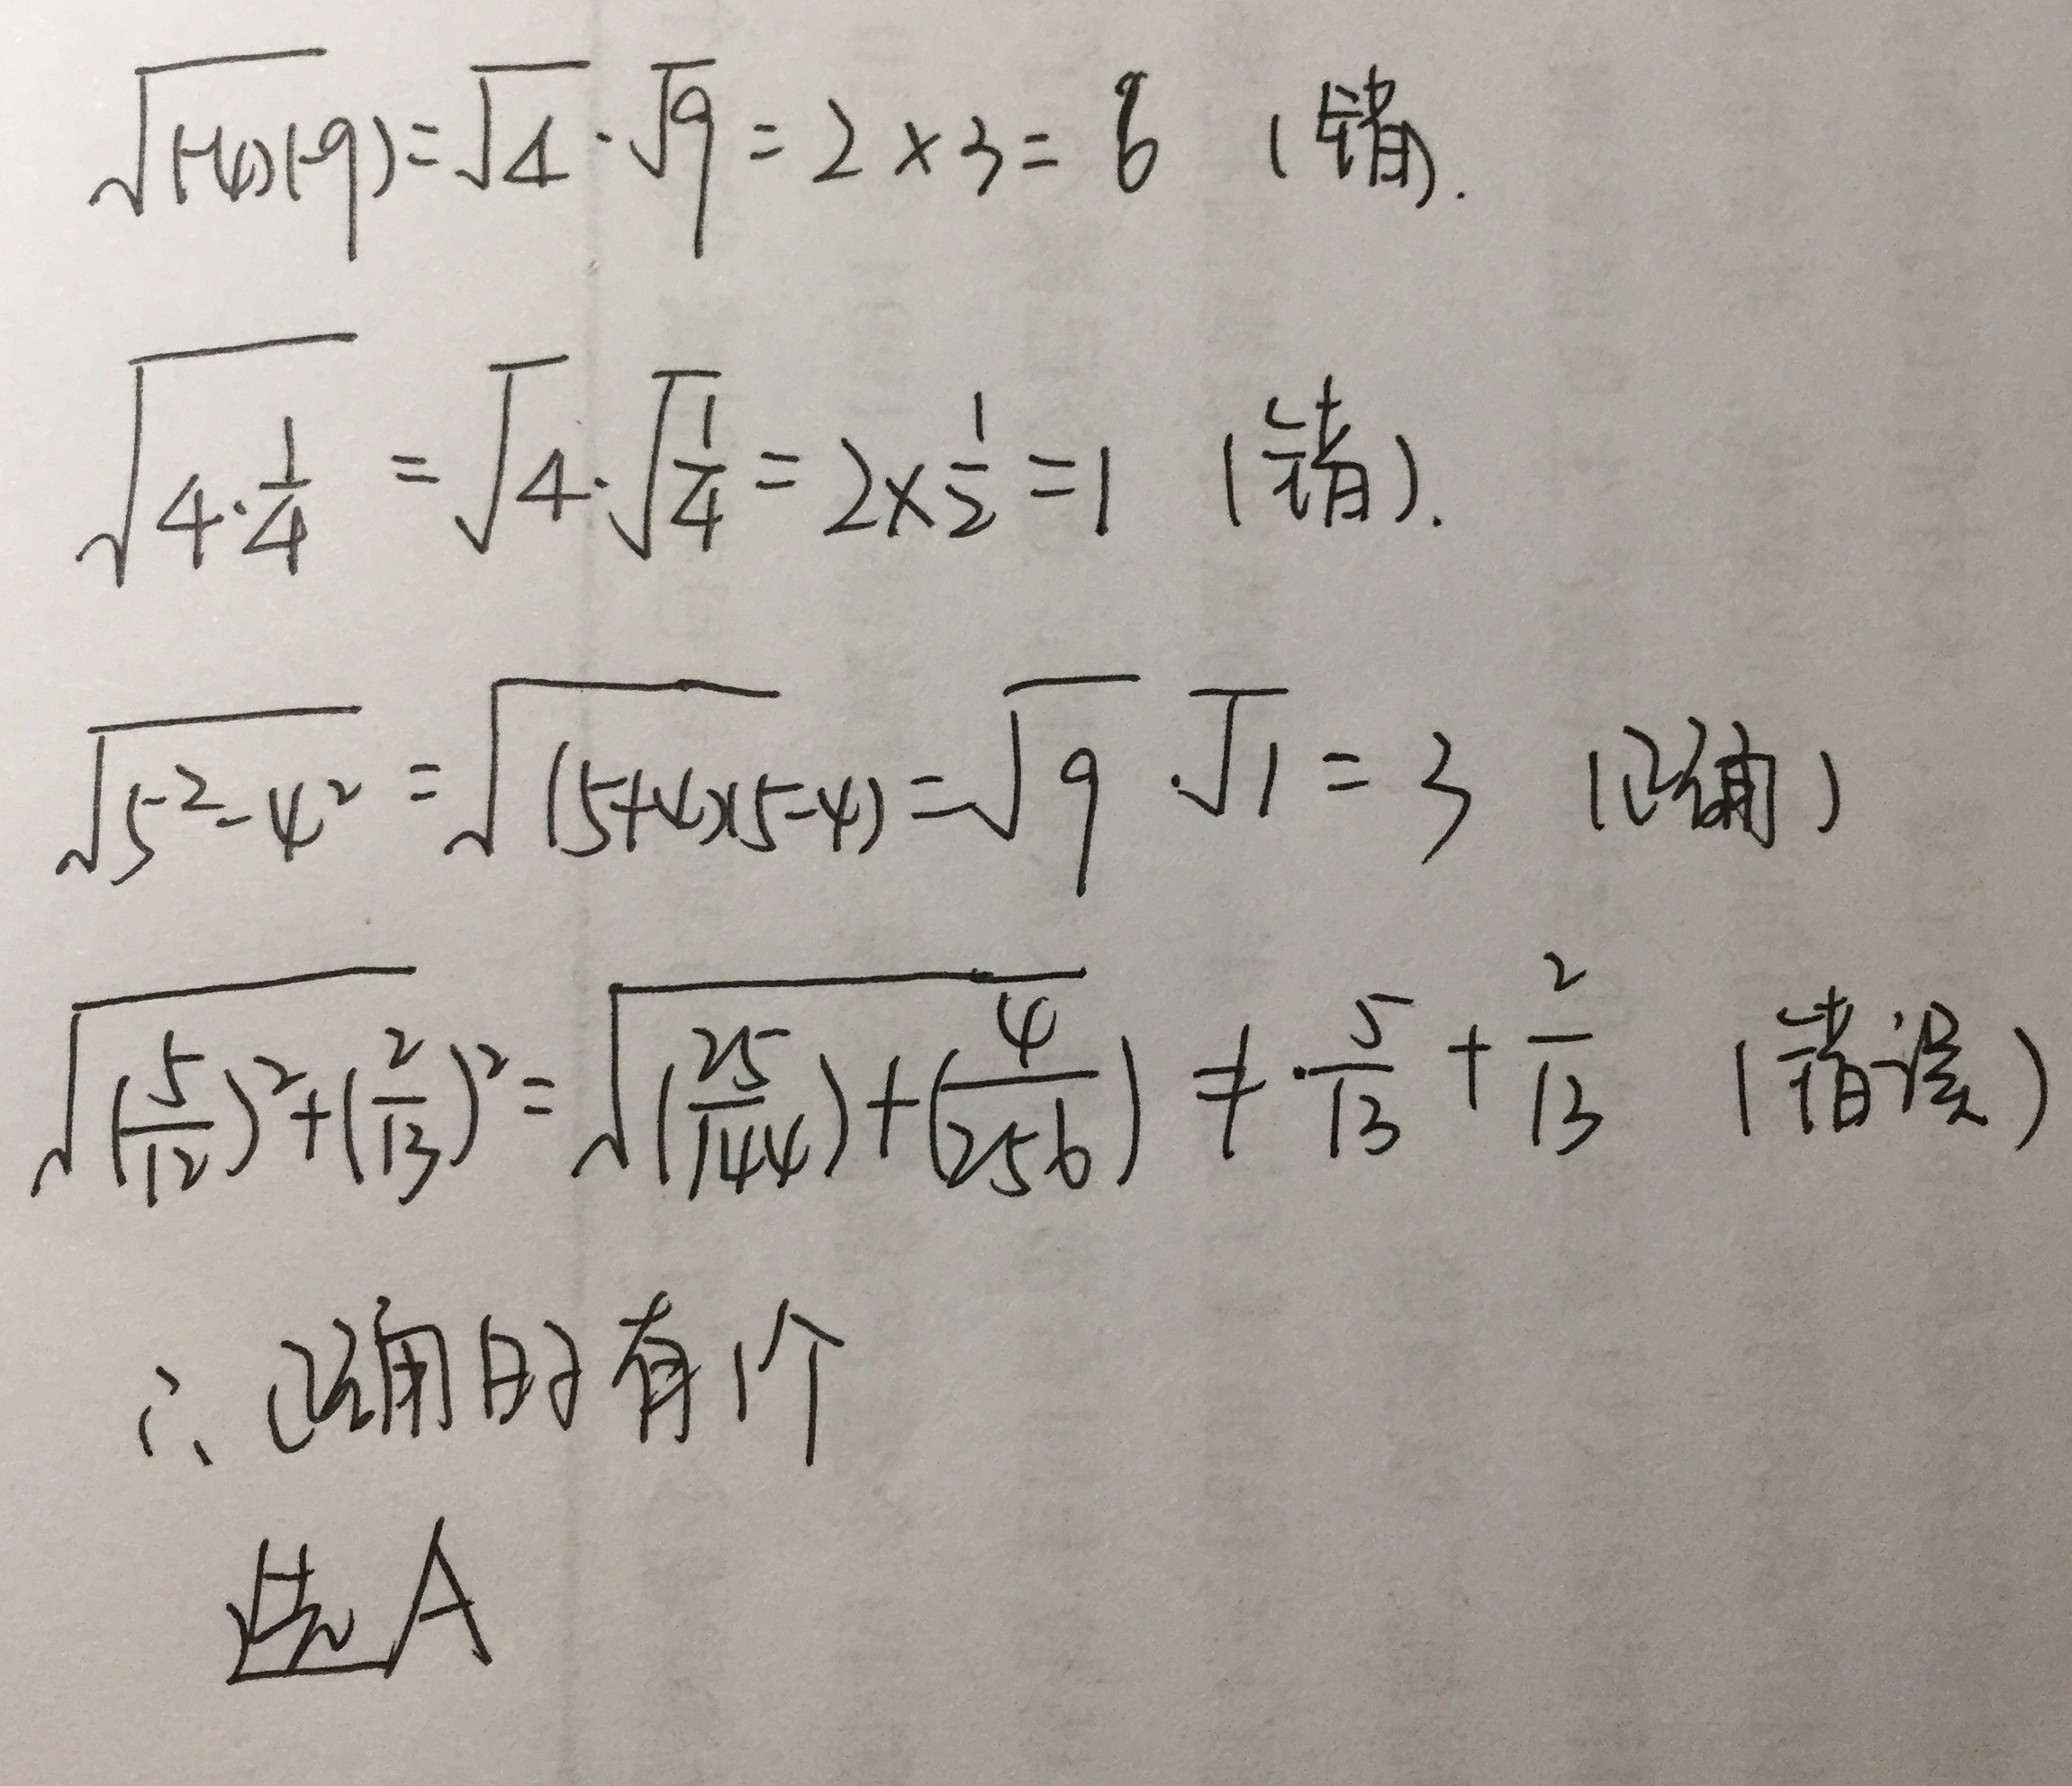 √(-4)(-9) = √4 · √9 = 2 × 3 = 6 (错).
√4·1/4 = √4 · √1/4 = 2×1/2 = 1 (错).
√5²-4² = √(5+4)(5-4) = √9 · √1 = 3 (正确)
√(5/12)²+(2/13)² = √(25/144)+(4/256) ≠ 5/13 + 2/13 (错误)
∴ 正确的有1个
选A